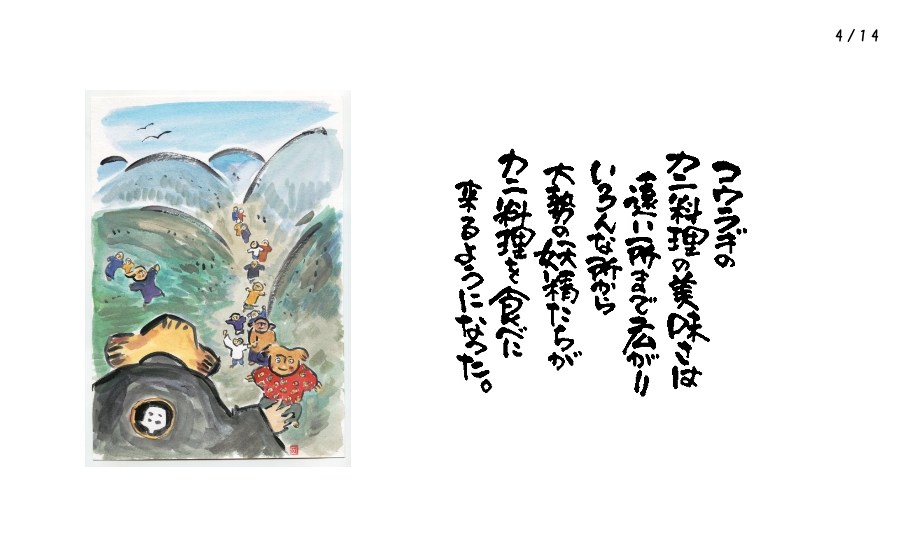 4/14
コウラギの
カニ料理の美味さは
遠い所まで広がり
いろんな所から
大勢の妖精たちが
カニ料理を食べに
来るようになった。